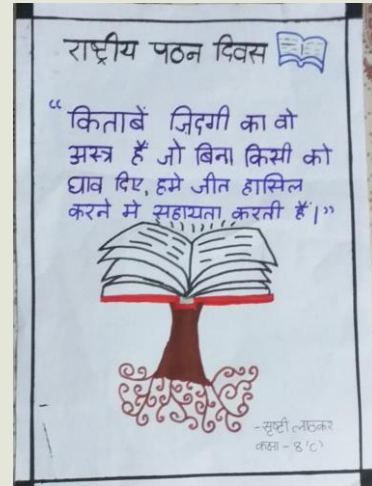 राष्ट्रीय पठन दिवस
“किताबें ज़िंदगी का वो
अस्त्र हैं जो बिना किसी को
घाव दिए, हमे जीत हासिल
करने मे सहायता करती हैं।”
-सृष्टी लाठकर
कक्षा - 8 'C'